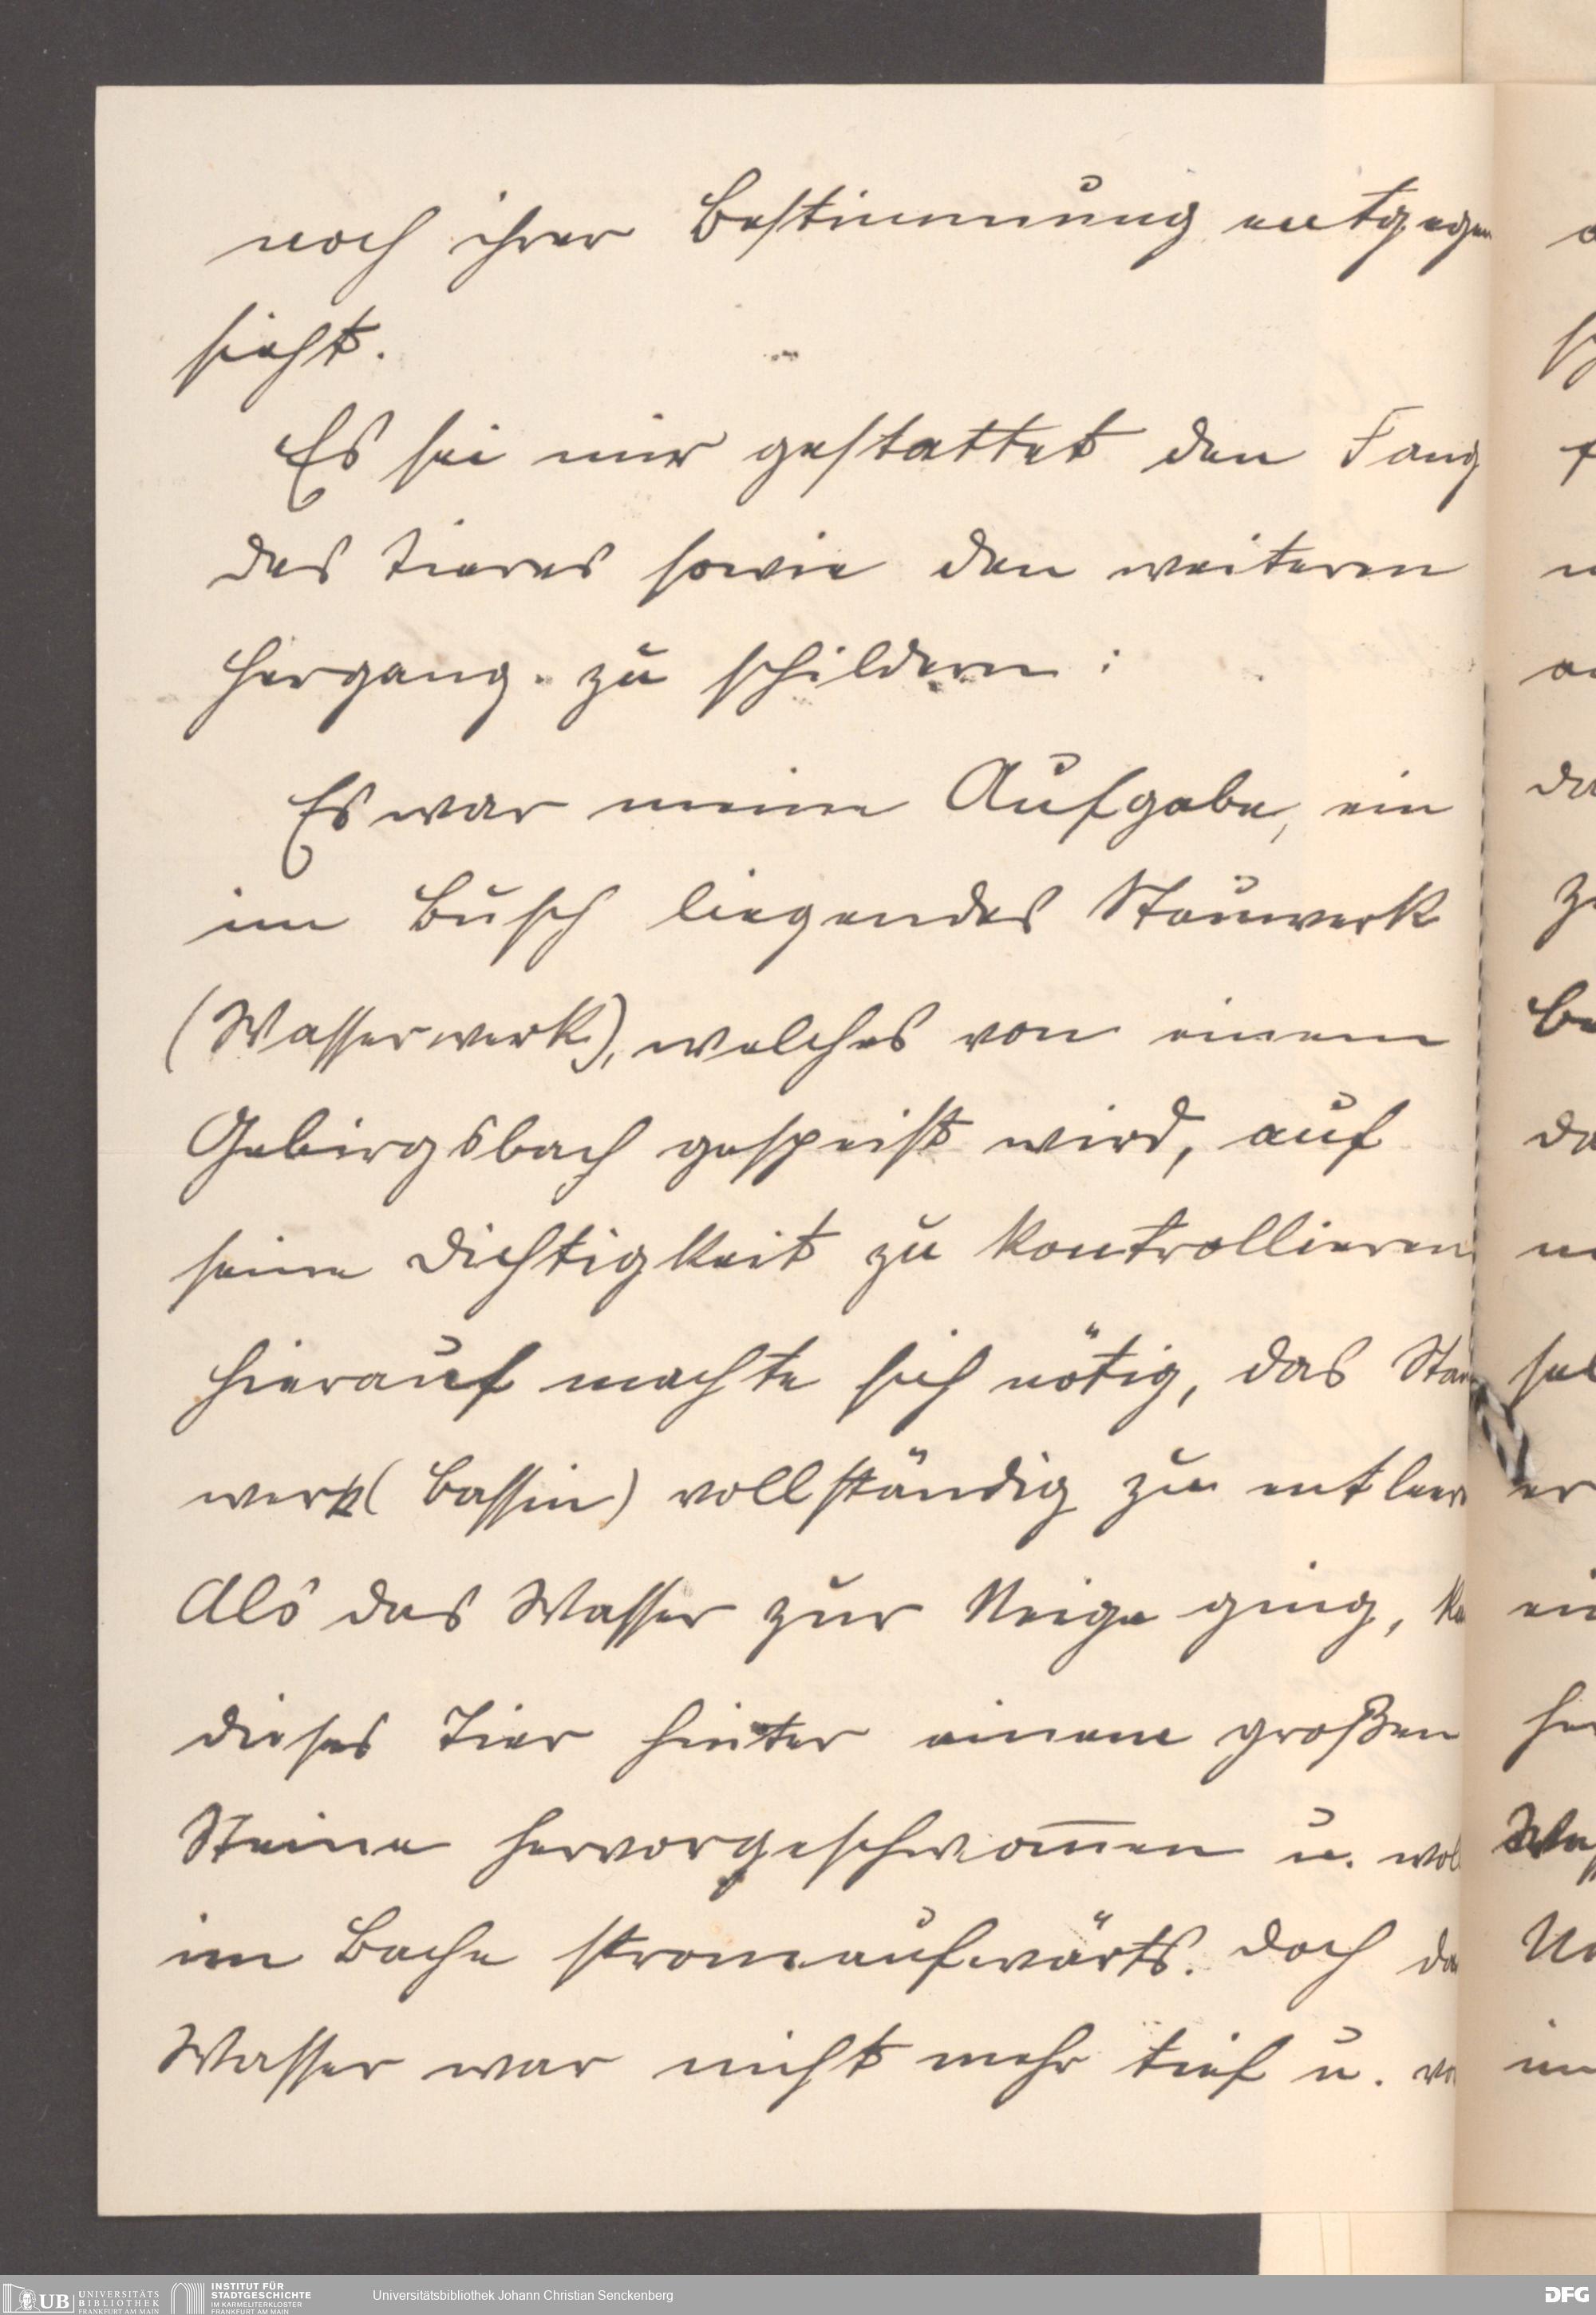 noch ihrer Bestimmung entgegen
sieht.
Es sei mir gestattet den Fang
des Tieres sowie den weiteren
Hergang zu schildern:
Es war meine Aufgabe, ein
im Busch liegendes Stauwerk
(Wasserwerk), welches von einem
Gebirgsbach gespeist wird, auf
seine Dichtigkeit zu kontrollieren
hierauf machte sich nötig, das Stau
werk (Bassin) vollständig zu entleer
Als das Wasser zur Neige ging, ka
dieses Tier hinter einem großen
Steine hervorgeschwom̅en u. wol
im Bache stromaufwärts. Doch da
Wasser war nicht mehr tief u. vo
UB UNIVERSITÄTS BIBLIOTHEK FRANKFURT AM MAIN
INSTITUT FÜR STADTGESCHICHTE IM KARMELITERKLOSTER FRANKFURT AM MAIN
Universitätsbibliothek Johann Christian Senckenberg
DFG